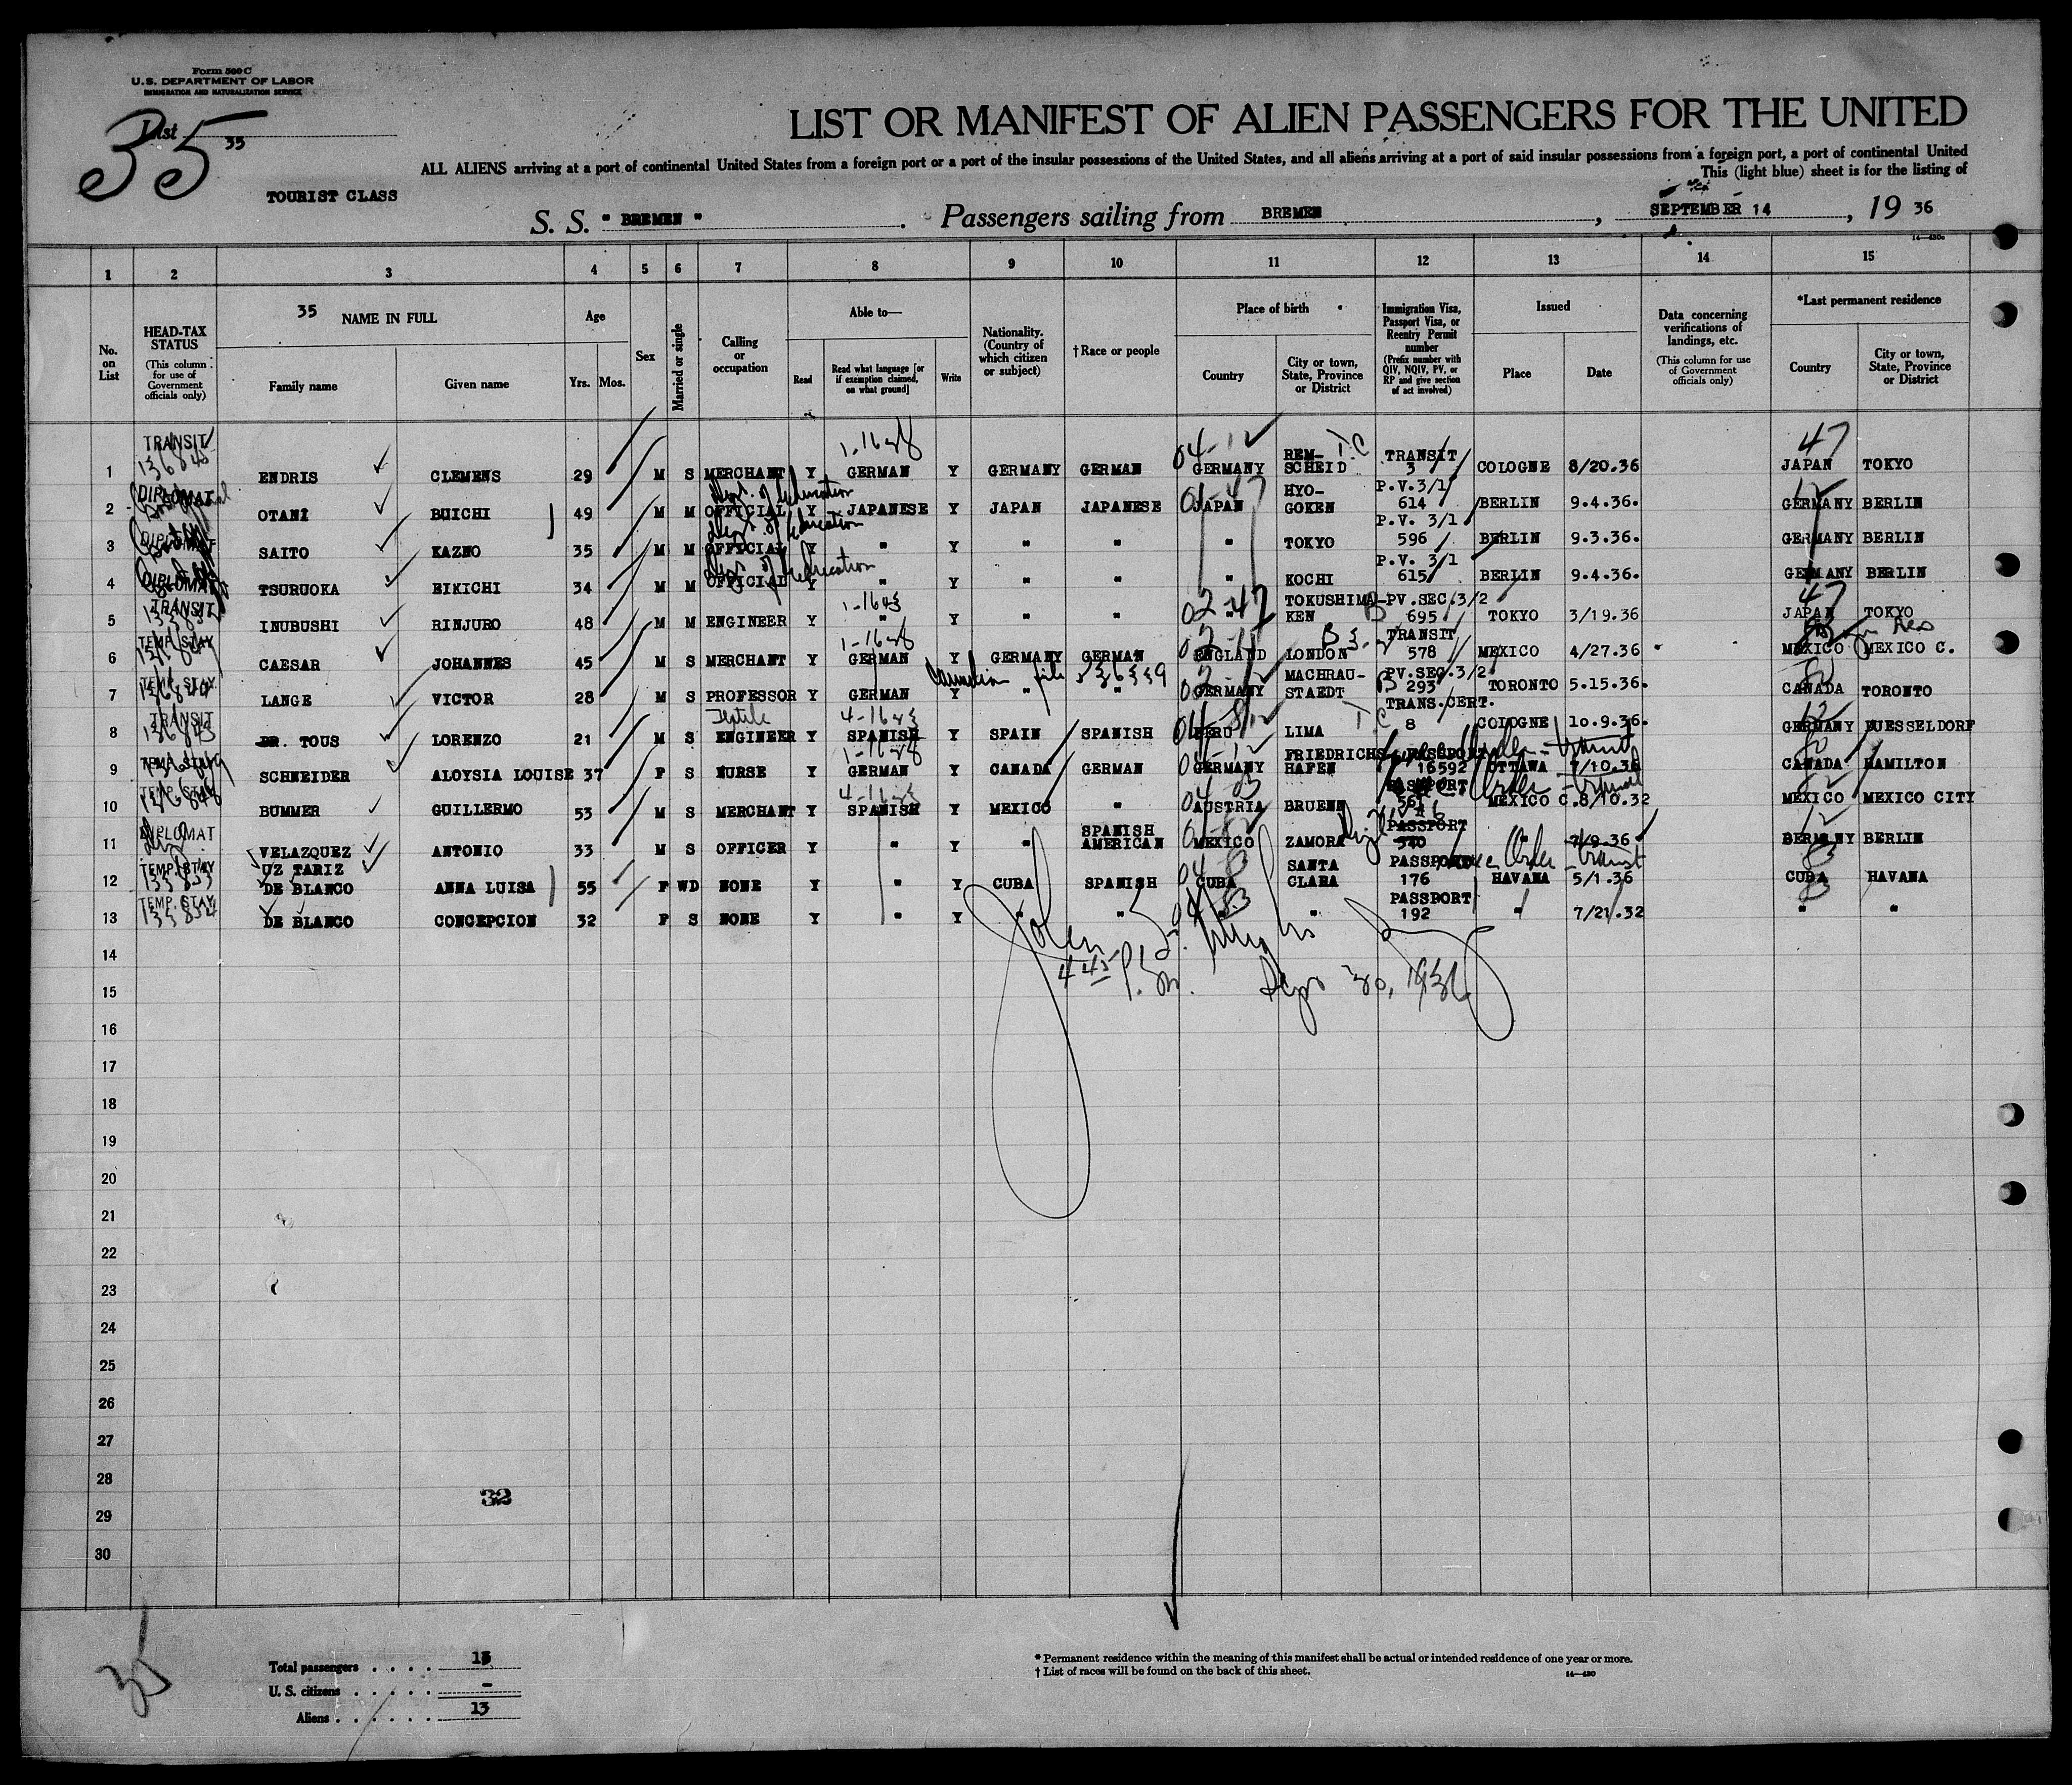 Form 500 C
U.S. DEPARTMENT OF LABOR
IMMIGRATION AND NATURALIZATION SERVICE
List 35
35
LIST OR MANIFEST OF ALIEN PASSENGERS FOR THE UNITED
ALL ALIENS arriving at a port of continental United States from a foreign port or a port of the insular possessions of the United States, and all aliens arriving at a port of said insular possessions from a foreign port, a port of continental United
This (light blue) sheet is for the listing of
TOURIST CLASS
S. S. " BREMEN " . Passengers sailing from BREMEN , SEPTEMBER 14 , 19 36
1 2 3 4 5 6 7 8 9 10 11 12 13 14 15
No. on List
HEAD-TAX STATUS (This column for use of Government officials only)
35 NAME IN FULL
Family name Given name
Age
Yrs. Mos.
Sex
Married or single
Calling or occupation
Able to—
Read
Read what language [or if exemption claimed, on what ground]
Write
Nationality. (Country of which citizen or subject)
†Race or people
Place of birth
Country
City or town, State, Province or District
Immigration Visa, Passport Visa, or Reentry Permit number (Prefix number with QIV, NQIV, PV, or RP and give section of act involved)
Issued
Place Date
Data concerning verifications of landings, etc. (This column for use of Government officials only)
*Last permanent residence
Country
City or town, State, Province or District
1 TRANSIT ENDRIS CLEMENS 29 M S MERCHANT Y GERMAN Y GERMANY GERMAN GERMANY REM- SCHEID TRANSIT 3 COLOGNE 8/20.36 JAPAN TOKYO
2 DIPLOMAT OTANI BUICHI 49 M M OFFICIAL Y JAPANESE Y JAPAN JAPANESE JAPAN HYO- GOKEN P.V.3/1 614 BERLIN 9.4.36. GERMANY BERLIN
3 DIPLOMAT SAITO KAZNO 35 M M OFFICIAL Y " Y " " " TOKYO P.V. 3/1 596 BERLIN 9.3.36. GERMANY BERLIN
4 DIPLOMAT TSURUOKA EIKICHI 34 M M OFFICIAL Y " Y " " " KOCHI P.V. 3/1 615 BERLIN 9.4.36. GERMANY BERLIN
5 TRANSIT INUBUSHI RINJURO 48 M M ENGINEER Y " Y " " " TOKUSHIMA- KEN PV.SEC.3/2 695 TOKYO 3/19.36 JAPAN TOKYO
6 TEMP. STAY CAESAR JOHANNES 45 M S MERCHANT Y GERMAN Y GERMANY GERMAN ENGLAND LONDON TRANSIT 578 MEXICO 4/27.36 MEXICO MEXICO C.
7 TEMP. STAY LANGE VICTOR 28 M S PROFESSOR Y GERMAN Y " " GERMANY MACHRAU- STAEDT PV.SEC.3/2 293 TORONTO 5.15.36. CANADA TORONTO
8 TRANSIT DR. TOUS LORENZO 21 M S Textile ENGINEER Y SPANISH Y SPAIN SPANISH PERU LIMA TRANS.CERT. 8 COLOGNE 10.9.36. GERMANY DUESSELDORF
9 TEMP. STAY SCHNEIDER ALOYSIA LOUISE 37 F S NURSE Y GERMAN Y CANADA GERMAN GERMANY FRIEDRICHS HAFEN PASSPORT 16592 OTTAWA 7/10.36 CANADA HAMILTON
10 TEMP. STAY BUMMER GUILLERMO 53 M S MERCHANT Y SPANISH Y MEXICO " AUSTRIA BRUENN PASSPORT 561 MEXICO C. 8/10.32 MEXICO MEXICO CITY
11 DIPLOMAT VELAZQUEZ ANTONIO 33 M S OFFICER Y " Y " SPANISH AMERICAN MEXICO ZAMORA PASSPORT 540 " 7/9.36 GERMANY BERLIN
12 TEMP. STAY UZ TARIZ DE BLANCO ANNA LUISA 55 F WD NONE Y " Y CUBA SPANISH CUBA SANTA CLARA PASSPORT 176 HAVANA 5/1.36 CUBA HAVANA
13 TEMP. STAY DE BLANCO CONCEPCION 32 F S NONE Y " Y " " " " PASSPORT 192 " 7/21.32 " "
14
445 P.M. Sept 20, 1936
15
16
17
18
19
20
21
22
23
24
25
26
27
28
32
29
30
35
Total passengers . . . . 13
U. S. citizens . . . . . -
Aliens . . . . . . 13
* Permanent residence within the meaning of this manifest shall be actual or intended residence of one year or more.
† List of races will be found on the back of this sheet.
14—430